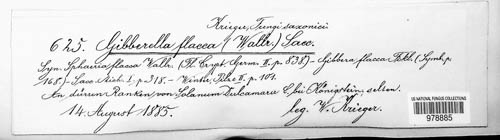 Krieger, Fungi saxonici
625. Gibberella flacca (Wallr.) Sacc.
Syn. Sphaeria flacca Wallr. (Fl. Crypt. Germ. II. p. 838) – Gibbera flacca Fckl. (Symb. p.
168.) – Sacc. Mich. I. p. 318. – Winter, Pilze II. p. 101.
An dürren Ranken von Solanum Dulcamara L. bei Königstein, selten.
14. August 1885. leg. W. Krieger.
US NATIONAL FUNGUS COLLECTIONS
978885